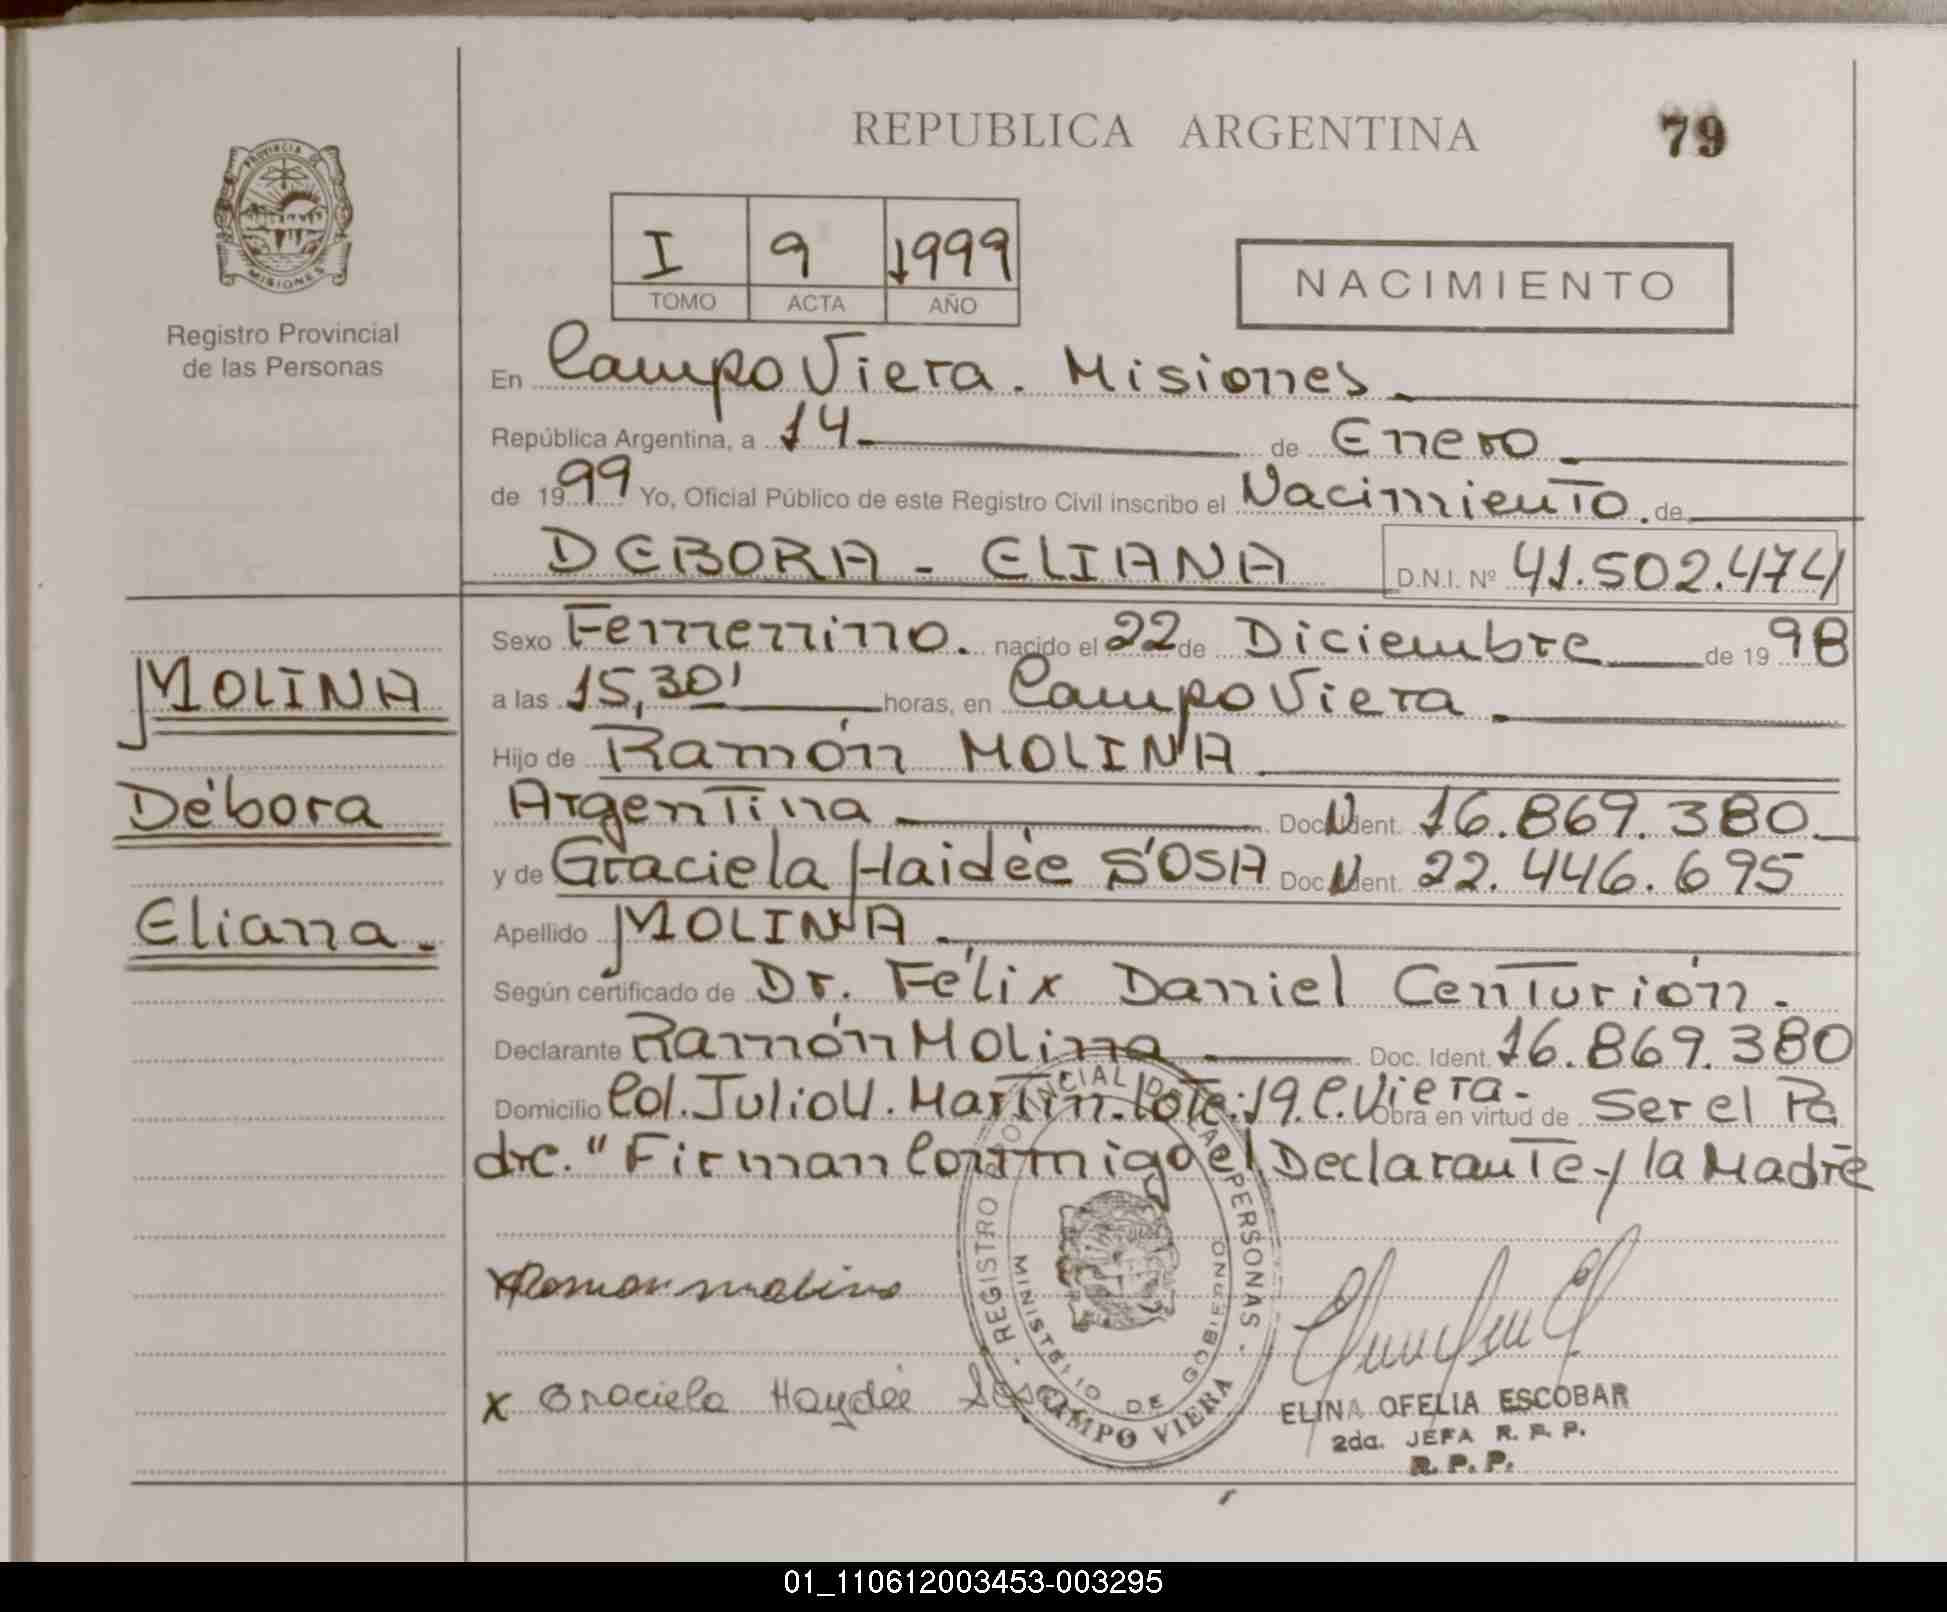 REPUBLICA ARGENTINA
79
PROVINCIA DE
MISIONES
Registro Provincial
de las Personas
I 9 1999
TOMO ACTA AÑO
NACIMIENTO
En Campo Viera. Misiones
República Argentina, a 14 de Enero
de 1999 Yo, Oficial Público de este Registro Civil inscribo el Nacimiento. de
DEBORA - ELIANA D.N.I. Nº 41.502.474
MOLINA
Débora
Eliana.
Sexo Femenino. nacido el 22 de Diciembre de 1998
a las 15,30' horas, en Campo Viera
Hijo de Ramón MOLINA
Argentina Doc. Ident. 16.869.380
y de Graciela Haidée SOSA Doc. Ident. 22.446.695
Apellido MOLINA
Según certificado de Dr. Félix Daniel Centurión.
Declarante Ramón Molina Doc. Ident. 16.869.380
Domicilio Col. Julio U. Martin. Lote: 19. C. Viera - Obra en virtud de Ser el Pa
dre. "Firman Conmigo el Declarante y la Madre
Ramon molina
x Graciela Haydée Sosa
REGISTRO PROVINCIAL DE LAS PERSONAS
MINISTERIO DE GOBIERNO
CAMPO VIERA
ELINA OFELIA ESCOBAR
2da. JEFA R. P. P.
R. P. P.
01_110612003453-003295